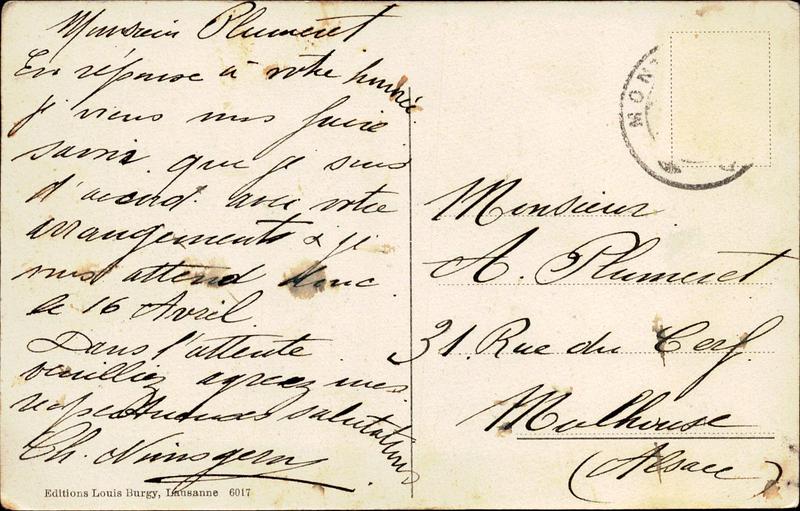 Monsieur Plumeret
En réponse à votre honoré
je viens vous faire
savoir que je suis
d'accord avec votre
arrangements & je
vous attend donc
le 16 Avril
Dans l'attente
veuilliez agreez mes
respectueuses salutations
Ch.
MON
Monsieur
A. Plumeret
31. Rue du Cerf
Mulhouse
(Alsace)
Editions Louis Burgy, Lausanne 6017